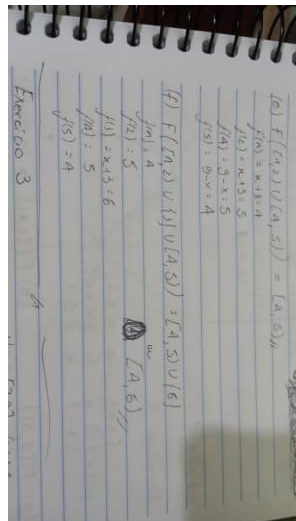 (e) F([1,2) ∪ (4,5)) = [4,5)„
f(1) = x+3 = 4
f(2) = x+3 = 5
f(4) = 9-x = 5
f(5) = 9-x = 4
(f) F([1,2) ∪ {3} ∪ [4,5)) = [4,5) ∪ {6}
f(1) = 4
f(2) = 5
f(3) = x+3 = 6
f(4) = 5
f(5) = 4
ou
[4,6)„
Exercício 3